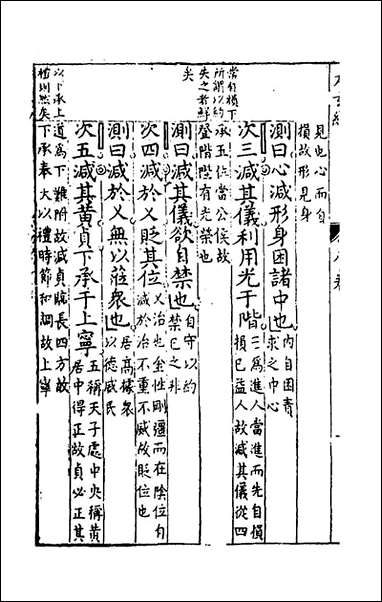 見也心而自
損故形見身
測曰心減形身困諸中也
内自困責
求之中心
次三減其儀利用光于階
三爲進人當進而先自損
損已益人故減其儀從四
常自損下
所謂以約
失之者鮮
矣
承五位當公侯故
登階陛有光榮也
測曰減其儀欲自禁也
自守以約
禁已之非
次四減於乂貶其位
乂治也金性剛彊而在陰位自
減於治不重不威故貶位也
測曰減於乂無以莅衆也
居高攝衆
以德威民
次五減其黃貞下承于上寧
五稱天子處中央稱黃
居中得正故貞必正其
以下承上
禮則然矣
道爲下難附故減貞 長四方故
下承奉大以禮時節和調故上寧